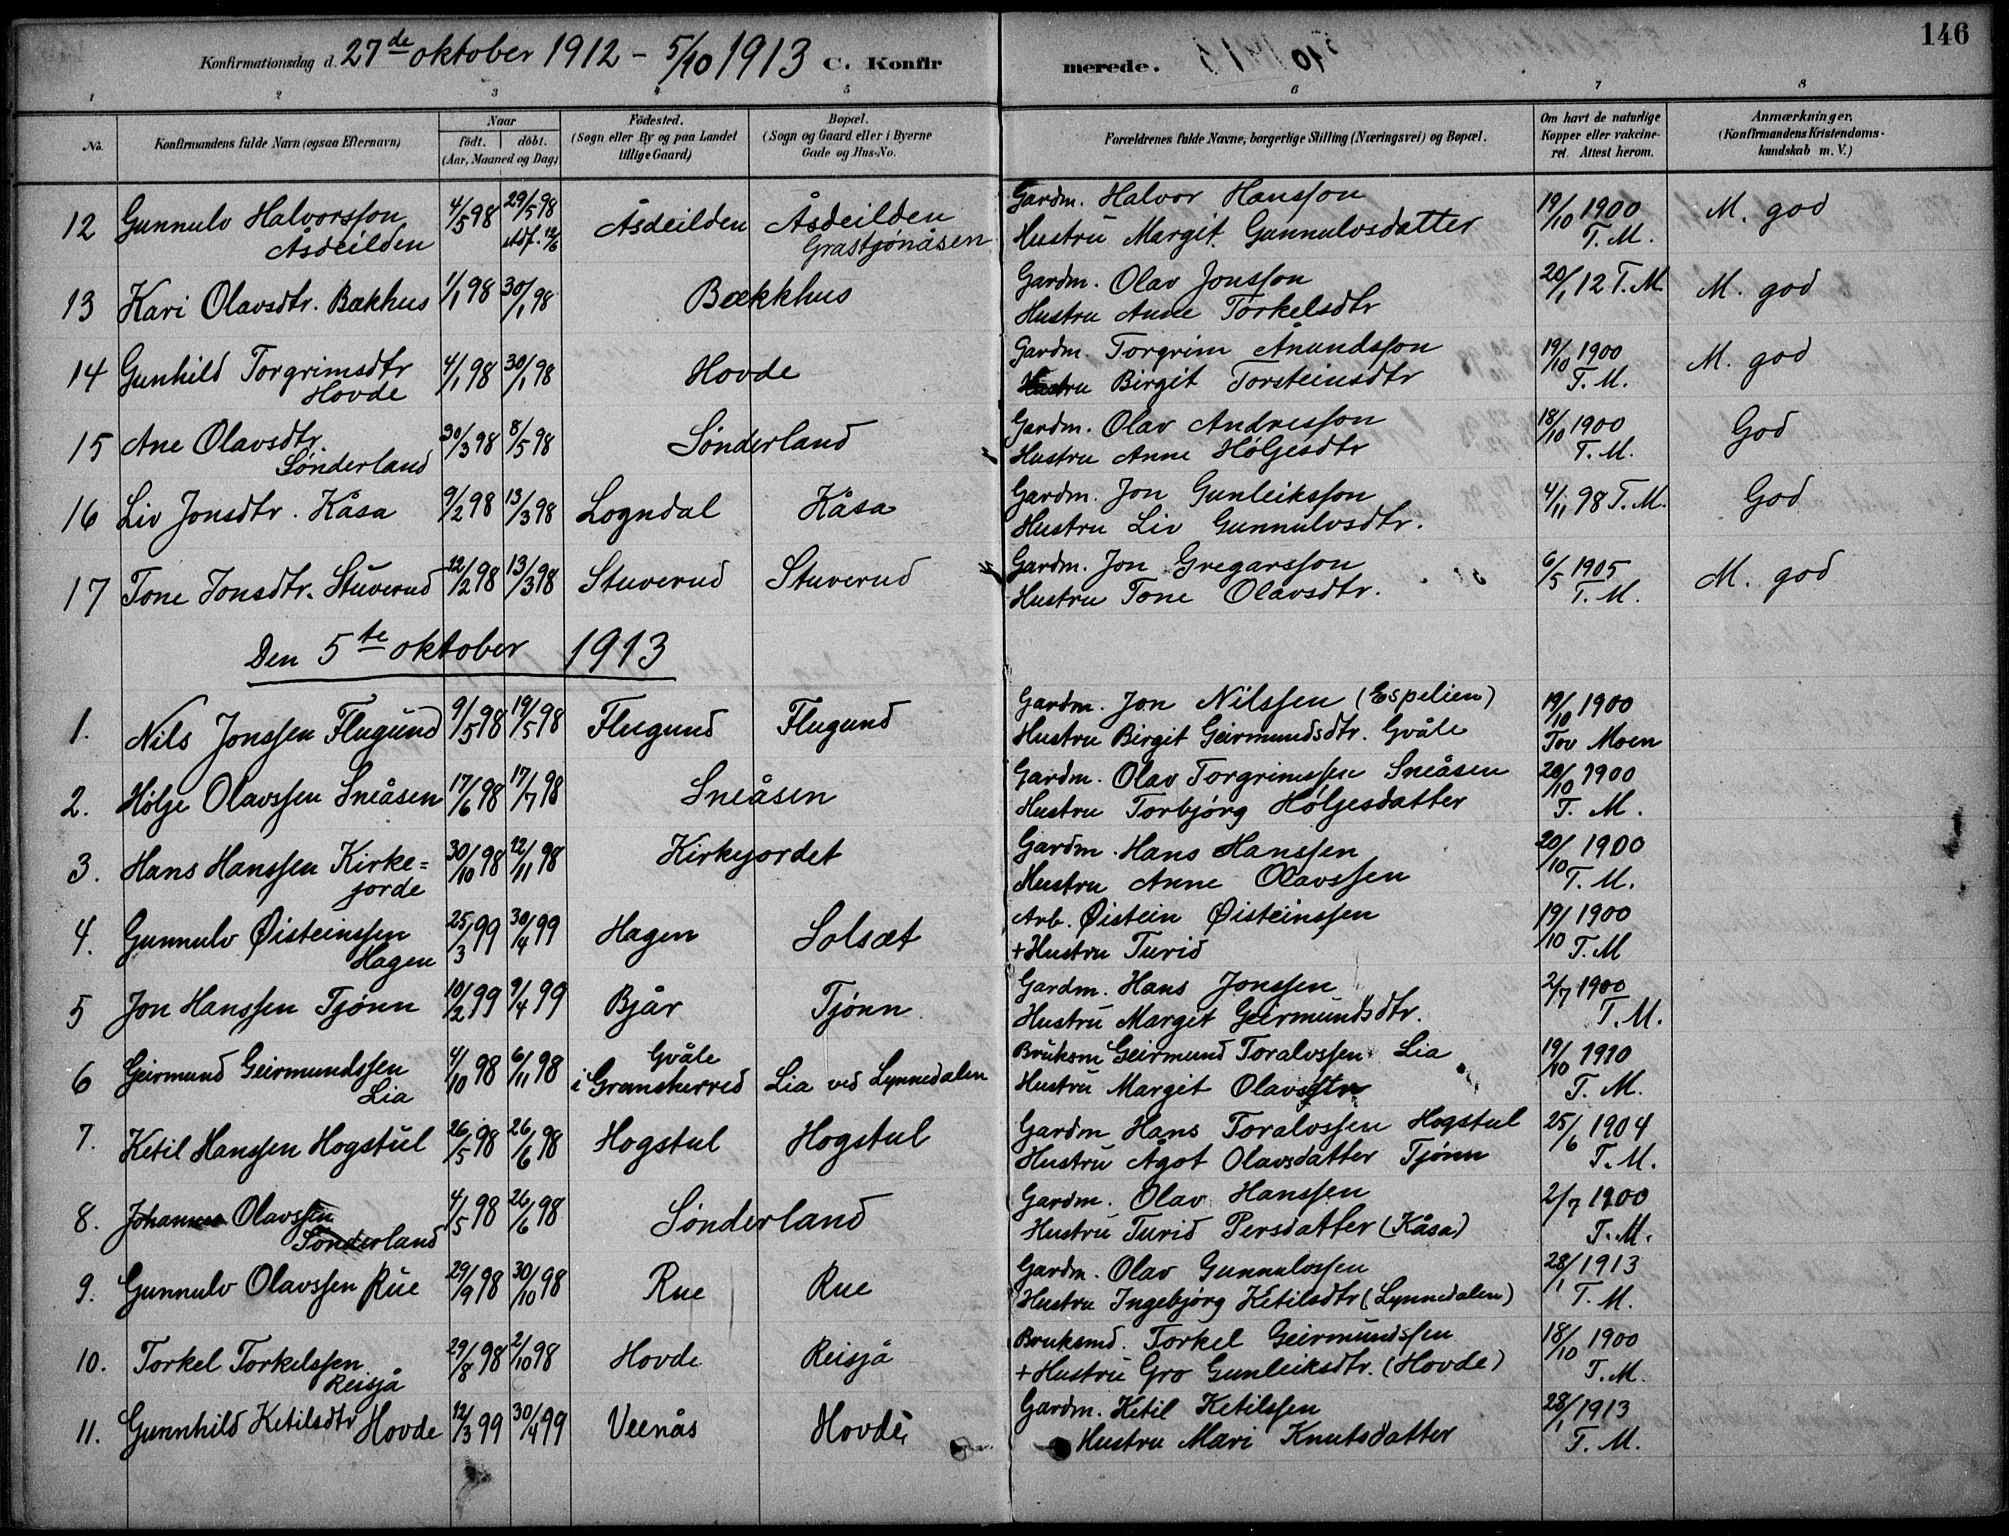 146
Konfirmationsdag d. 27de oktober 1912 - 5/10 1913 C. Konfirmerede.
1 2 3 4 5 6 7 8
No. Konfirmandens fulde Navn (ogsaa Efternavn) Naar født. døbt. (Aar, Maaned og Dag) Fødested. (Sogn eller By og paa Landet tillige Gaard) Bopæl. (Sogn og Gaard eller i Byerne Gade og Hus-No. Forældrenes fulde Navne, borgerlige Stilling (Næringsvei) og Bopæl. Om havt de naturlige Kopper eller vakcineret. Attest herom. Anmærkninger. (Konfirmandens Kristendomskundskab m. V.)
12 Gunnulv Halvorsson 4/5 98 29/5 98 Åsdeilden Åsdeilden Gardm. Halvor Hansson 19/10 1900 M. god
Åsdeilden stdf. 12/6 Grastjønåsen Hustru Margit Gunnulvsdatter T. M.
13 Kari Olavsdtr. Bakhus 1/1 98 30/1 98 Bækkhus Gardm. Olav Jonsson 20/1 12 T. M. M. god
Hustru Anne Torkelsdtr
14 Gunhild Torgrimsdtr 4/1 98 30/1 98 Hovde Gardm. Torgrim Ånundsson 19/10 1900 M. god
Hovde Hustru Birgit Torsteinsdtr T. M.
15 Ane Olavsdtr. 30/3 98 8/5 98 Sønderland Gardm. Olav Andresson 18/10 1900 God
Sønderland Hustru Anne Hølgesdtr T. M.
16 Liv Jonsdtr. Kåsa 9/2 98 13/3 98 Logndal Kåsa Gardm. Jon Gunleiksson 4/11 98 T. M. God
Hustru Liv Gunnulvsdtr.
17 Tone Jonsdtr. Stuverud 22/2 98 13/3 98 Stuverud Stuverud Gardm. Jon Gregarsson 6/5 1905 M. god
Hustru Tone Olavsdtr. T. M.
Den 5te oktober 1913
1. Nils Jonssen Flugund 9/5 98 19/5 98 Flugund Flugund Gardm. Jon Nilssen (Espelien) 19/10 1900
Hustru Birgit Geirmundsdtr. Gvåle Tov Moen
2. Hølje Olavssen Sneåsen 17/6 98 17/7 98 Sneåsen Gardm. Olav Torgrimssen Sneåsen 20/10 1900
Hustru Torbjørg Høljesdatter T. M.
3. Hans Hanssen Kirke= 30/10 98 22/11 98 Kirkejordet Gardm. Hans Hanssen 20/10 1900
jorde Hustru Anne Olavssen T. M.
4. Gunnulv Øisteinssen 25/3 99 30/4 99 Hagen Solsæt Arb. Øistein Øisteinssen 19/10 1900
Hagen +Hustru Turid T. M
5 Jon Hanssen Tjønn 10/2 99 9/4 99 Bjår Tjønn Gardm. Hans Jonssen 2/7 1900
Hustru Margit Geirmundsdtr. T. M.
6 Geirmund Geirmundssen 4/10 98 6/11 98 Gvåle Bruksm Geirmund Toralvssen Lia 19/10 1910
Lia i Grønskerred Lia ved Lynnedalen Hustru Margit Olavsdtr T. M.
7. Ketil Hanssen Hogstul 26/5 98 26/6 98 Hogstul Hogstul Gardm Hans Toralvssen Hogstul 25/6 1904
Hustru Ågot Olavsdatter Tjønn T. M.
8. Johannes Olavssen 4/5 98 26/6 98 Sønderland Gardm. Olav Hanssen 2/7 1900
Sønderland Hustru Turid Persdatter (Kåsa) T. M.
9. Gunnulv Olavssen Rue 29/9 98 30/10 98 Rue Rue Gardm. Olav Gunnulvssen 28/1 1913
Hustru Ingebjørg Ketilsdtr (Lynnedalen) T. M.
10. Torkel Torkelssen 29/8 98 2/10 98 Hovde Reisjå Bruksmd. Torkel Geirmundssen 18/10 1900
Reisjå +Hustru Gro Gunleiksdtr. (Hovde) T. M.
11. Gunnhild Ketilsdtr Hovde 12/3 99 30/4 99 Veenås Hovde Gardm. Ketil Ketilssen 28/1 1913
Hustru Mari Knutsdatter T. M.